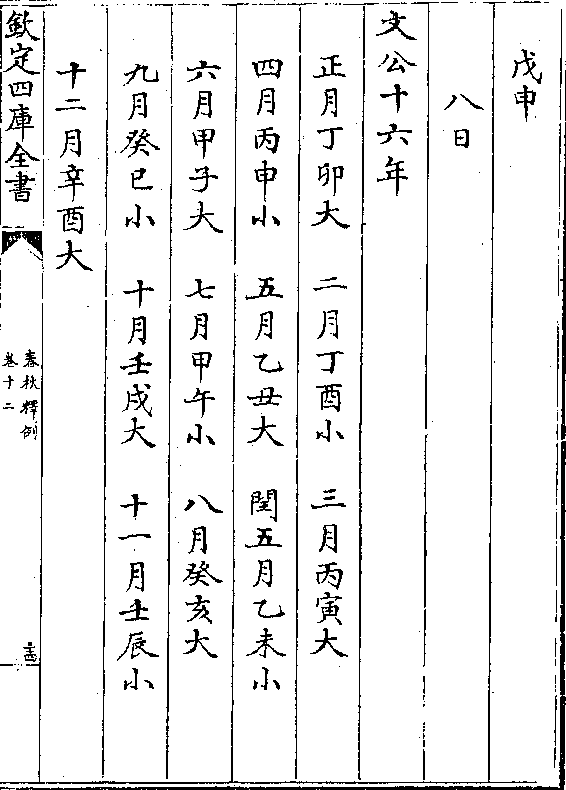 戊申
八日
文公十六年
正月丁卯大　二月丁酉小　三月丙寅大
四月丙申小　五月乙丑大　閏五月乙未小
六月甲子大　七月甲午小　八月癸亥大
九月癸巳小　十月壬戌大　十一月壬辰小
十二月辛酉大
欽定四庫全書
春秋釋例
卷十二